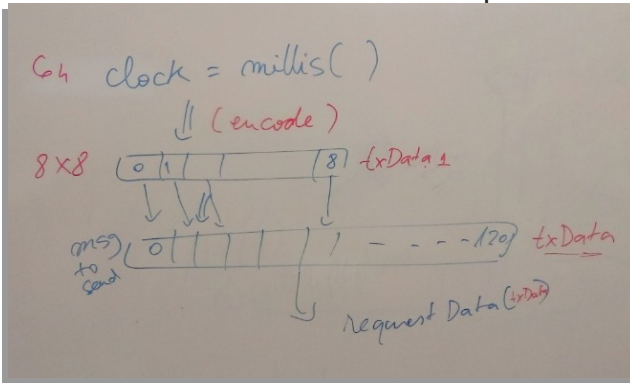 64 clock = millis( )
(encode)
8x8 0 1 8 txData 1
msg to send 0 - - - - - 120 txData
request Data (txData)